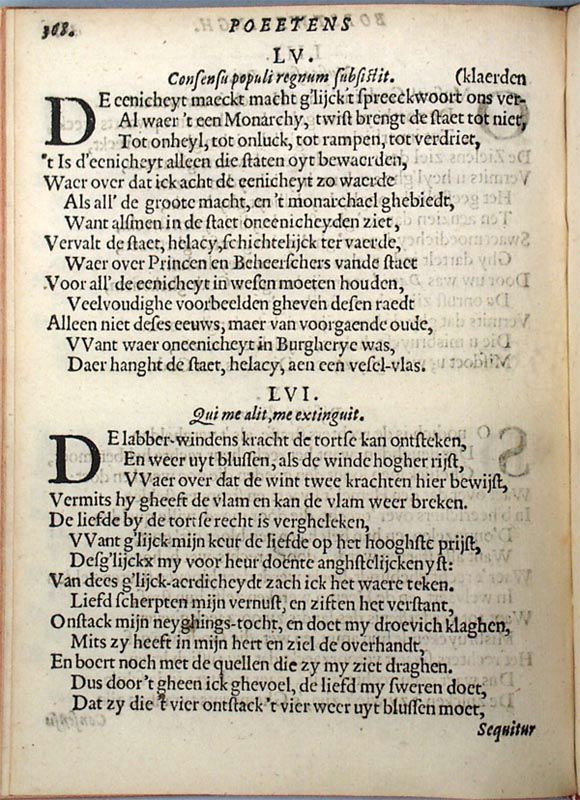 368.
POEETENS
LV.
Consensu populi regnum subsistit. (klaerden
DE eenicheyt maeckt macht g'lijck't spreeckwoort ons ver-
Al waer 't een Monarchy, twist brengt de staet tot niet,
Tot onheyl, tot onluck, tot rampen, tot verdriet,
't Is d'eenicheyt alleen die staten oyt bewaerden,
Waer over dat ick acht de eenicheyt zo waerde
Als all' de groote macht, en 't monarchael ghebiedt,
Want alsmen in de staet oneenicheyden ziet,
Vervalt de staet, helacy, schichtelijck ter vaerde,
Waer over Princen en Beheerschers vande staet
Voor all' de eenicheyt in wesen moeten houden,
Veelvoudighe voorbeelden gheven desen raedt
Alleen niet deses eeuws, maer van voorgaende oude,
VVant waer oneenicheyt in Burgherye was,
Daer hanght de staet, helacy, aen een vesel-vlas.
LVI.
Qui me alit, me extinguit.
DE labber-windens kracht de tortse kan ontsteken,
En weer uyt blussen, als de winde hogher rijst,
VVaer over dat de wint twee krachten hier bewijst,
Vermits hy gheeft de vlam en kan de vlam weer breken.
De liefde by de tortse recht is vergheleken,
VVant g'lijck mijn keur de liefde op het hooghste prijst,
Desg'lijckx my voor heur doente anghstelijcken yst:
Van dees g'lijck-aerdicheydt zach ick het waere teken.
Liefd scherpten mijn vernuft, en ziften het verstant,
Onstack mijn neyghings-tocht, en doet my droevich klaghen,
Mits zy heeft in mijn hert en ziel de overhandt,
En boert noch met de quellen die zy my ziet draghen.
Dus door 't gheen ick ghevoel, de liefd my sweren doet,
Dat zy die 't vier ontstack 't vier weer uyt blussen moet,
Sequitur